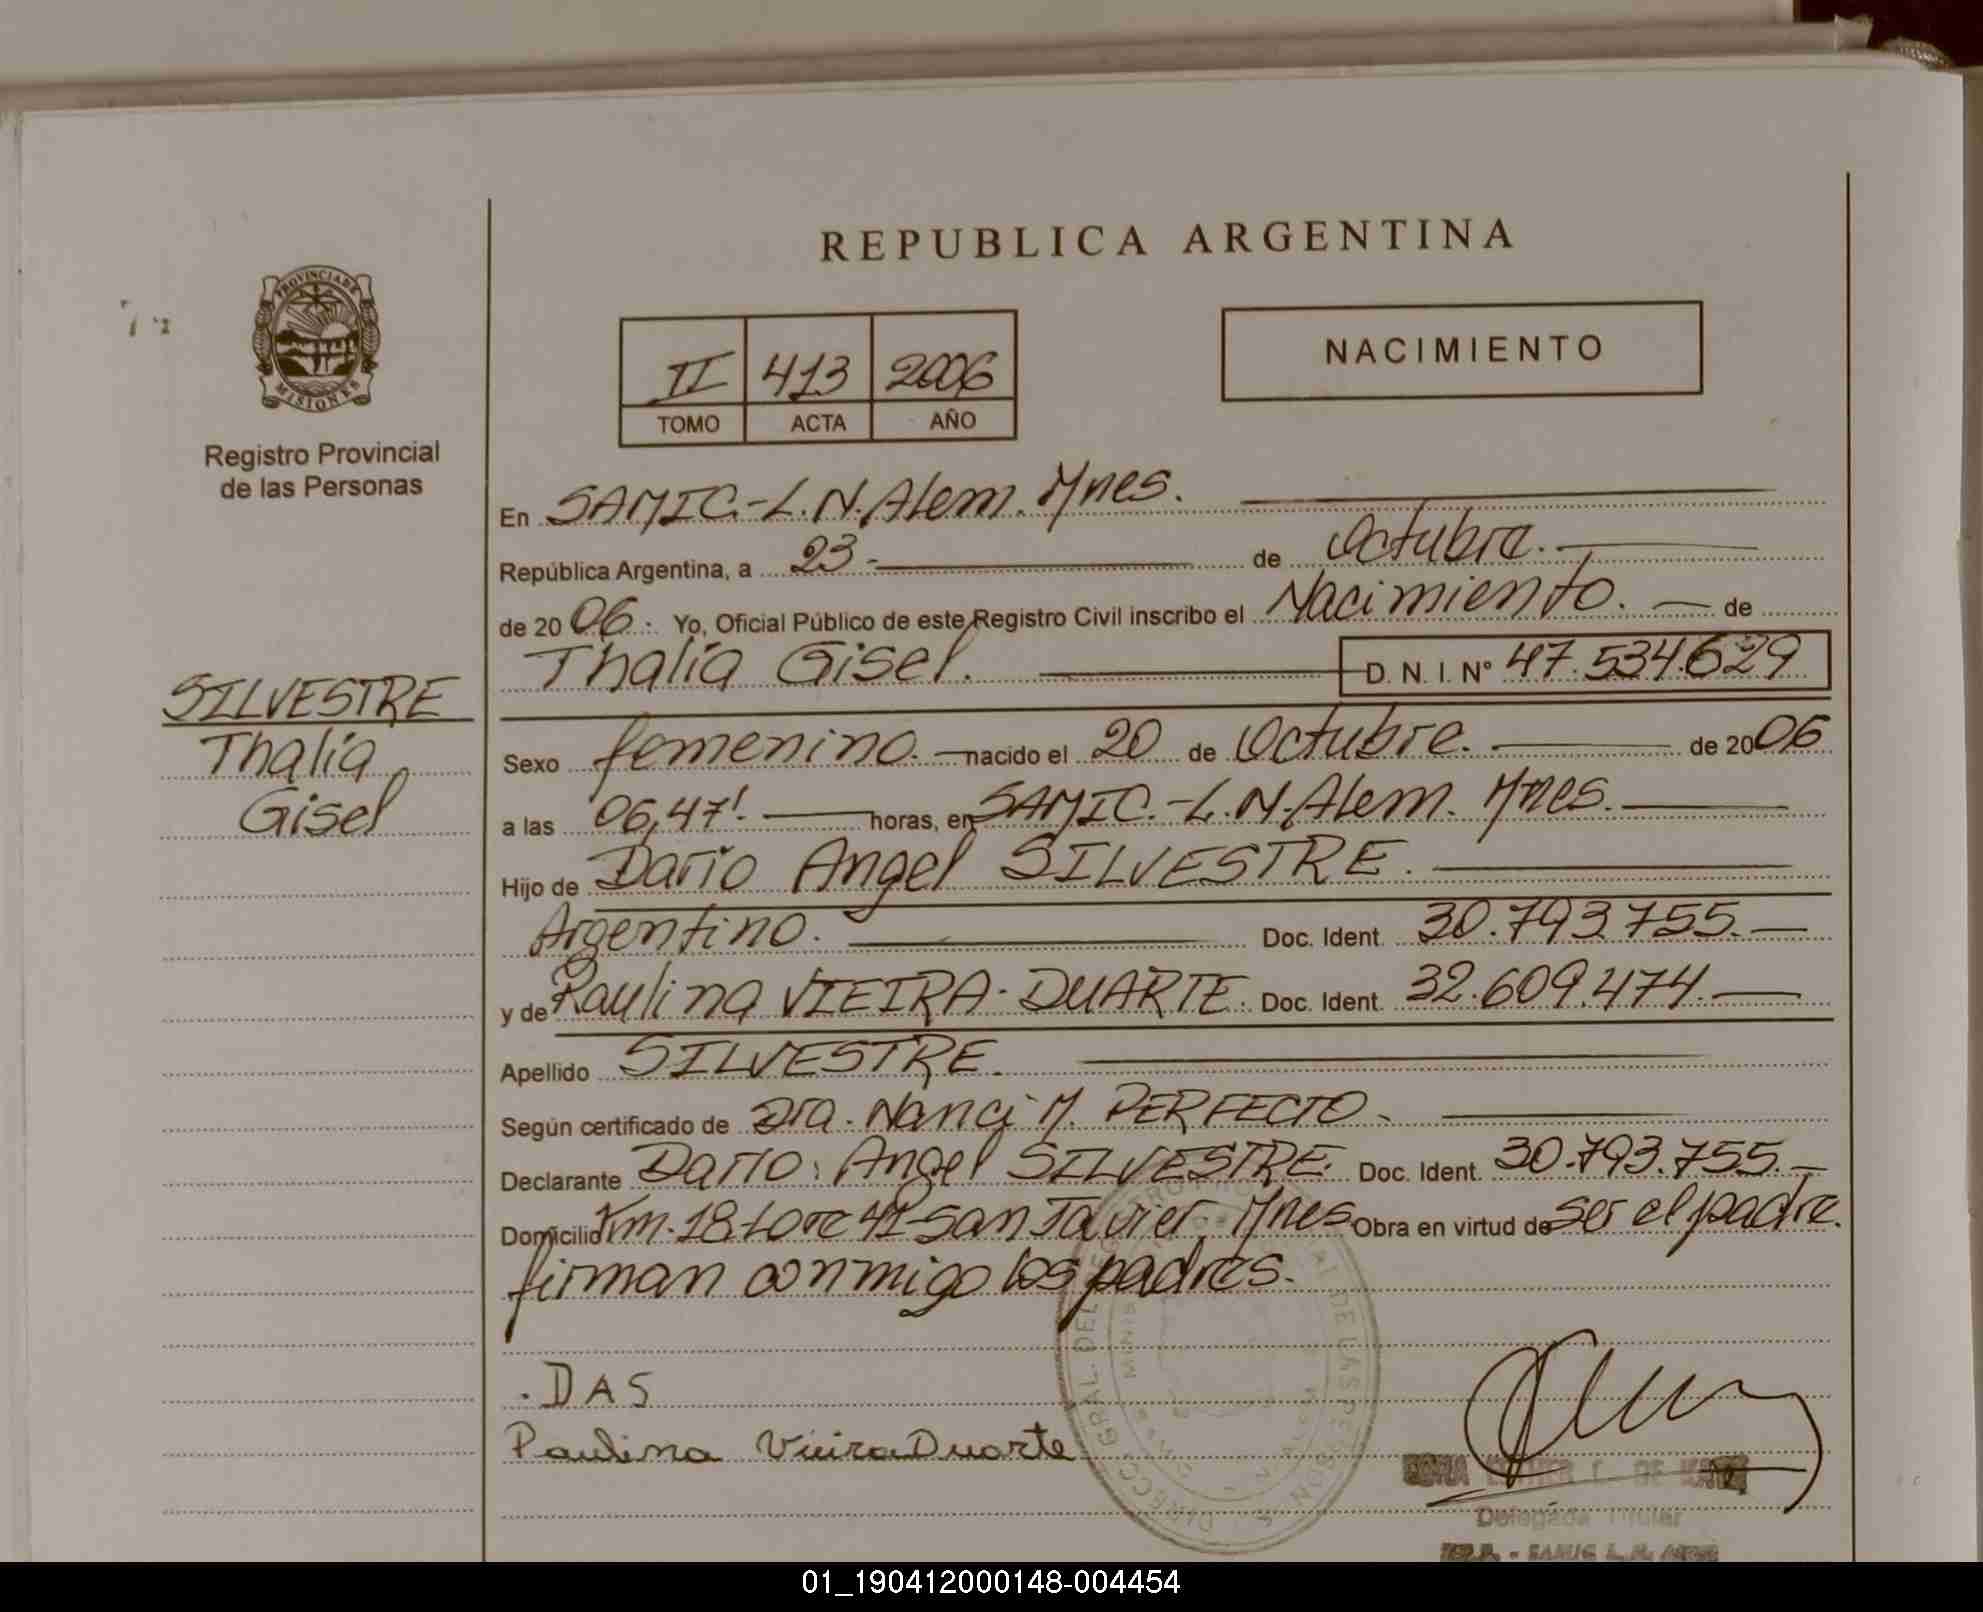 REPUBLICA ARGENTINA
PROVINCIA DE
MISIONES
Registro Provincial
de las Personas
II 413 2006
TOMO ACTA AÑO
NACIMIENTO
En SAMIC.-L.N.Alem. Mnes.
República Argentina, a 23.- de Octubre.
de 2006. Yo, Oficial Público de este Registro Civil inscribo el Nacimiento. de
Thalía Gisel. D. N. I. Nº 47.534.629
SILVESTRE
Thalía
Gisel
Sexo femenino. nacido el 20 de Octubre. de 2006
a las 06,47'. horas, en SAMIC.-L.N.Alem. Mnes.
Hijo de Darío Angel SILVESTRE.
Argentino. Doc. Ident. 30.793.755.
y de Paulina VIEIRA-DUARTE. Doc. Ident. 32.609.474.
Apellido SILVESTRE.
Según certificado de Dra. Nanci M. PERFECTO.
Declarante Darío Angel SILVESTRE. Doc. Ident. 30.793.755.
Domicilio Km.18-Lote 41-San Javier, Mnes. Obra en virtud de ser el padre.
firman conmigo los padres.
DAS
Paulina Vieira Duarte
DE
Delegada Titular
01_190412000148-004454